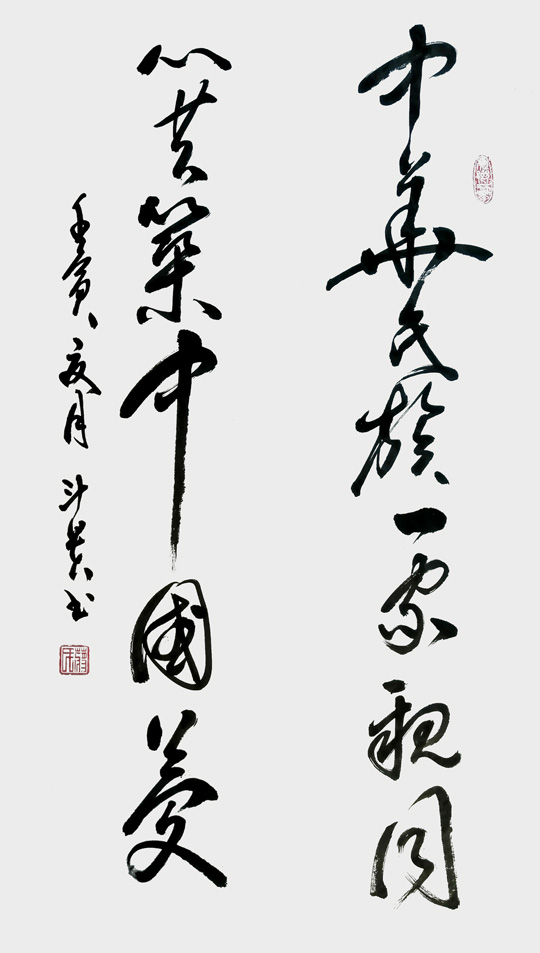 中华民族一家亲同
心共筑中国梦
壬寅夏月 斗 书